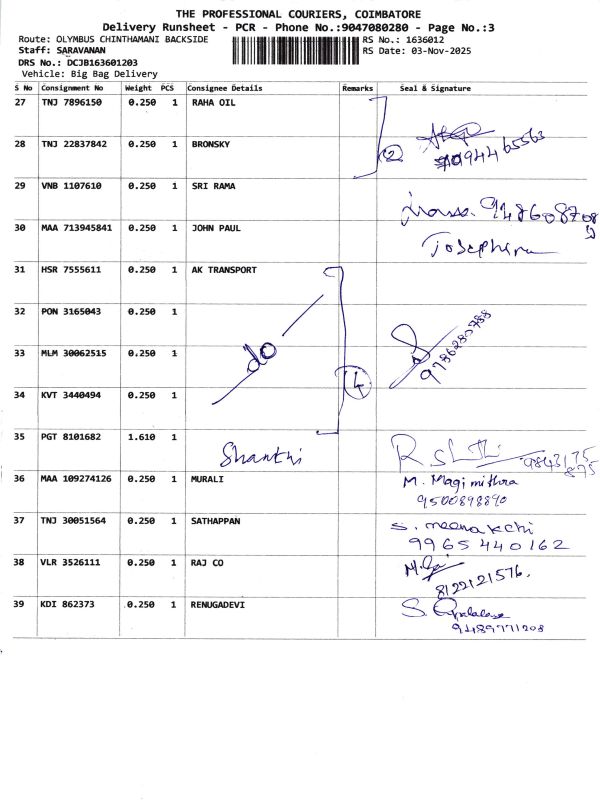 THE PROFESSIONAL COURIERS, COIMBATORE
Delivery Runsheet - PCR - Phone No.:9047080280 - Page No.:3
Route: OLYMBUS CHINTHAMANI BACKSIDE RS No.: 1636012
Staff: SARAVANAN RS Date: 03-Nov-2025
DRS No.: DCJB163601203
Vehicle: Big Bag Delivery
S No Consignment No Weight PCS Consignee Details Remarks Seal & Signature
27 TNJ 7896150 0.250 1 RAHA OIL
28 TNJ 22837842 0.250 1 BRONSKY 2
29 VNB 1107610 0.250 1 SRI RAMA 948608708
30 MAA 713945841 0.250 1 JOHN PAUL
31 HSR 7555611 0.250 1 AK TRANSPORT
32 PON 3165043 0.250 1
33 MLM 30062515 0.250 1 do 9786280788
34 KVT 3440494 0.250 1 4
35 PGT 8101682 1.610 1 Shanthi
36 MAA 109274126 0.250 1 MURALI M. Magimithra
9500898890
37 TNJ 30051564 0.250 1 SATHAPPAN S. meenakchi
9965440162
38 VLR 3526111 0.250 1 RAJ CO
8122121576.
39 KDI 862373 0.250 1 RENUGADEVI
9489771208